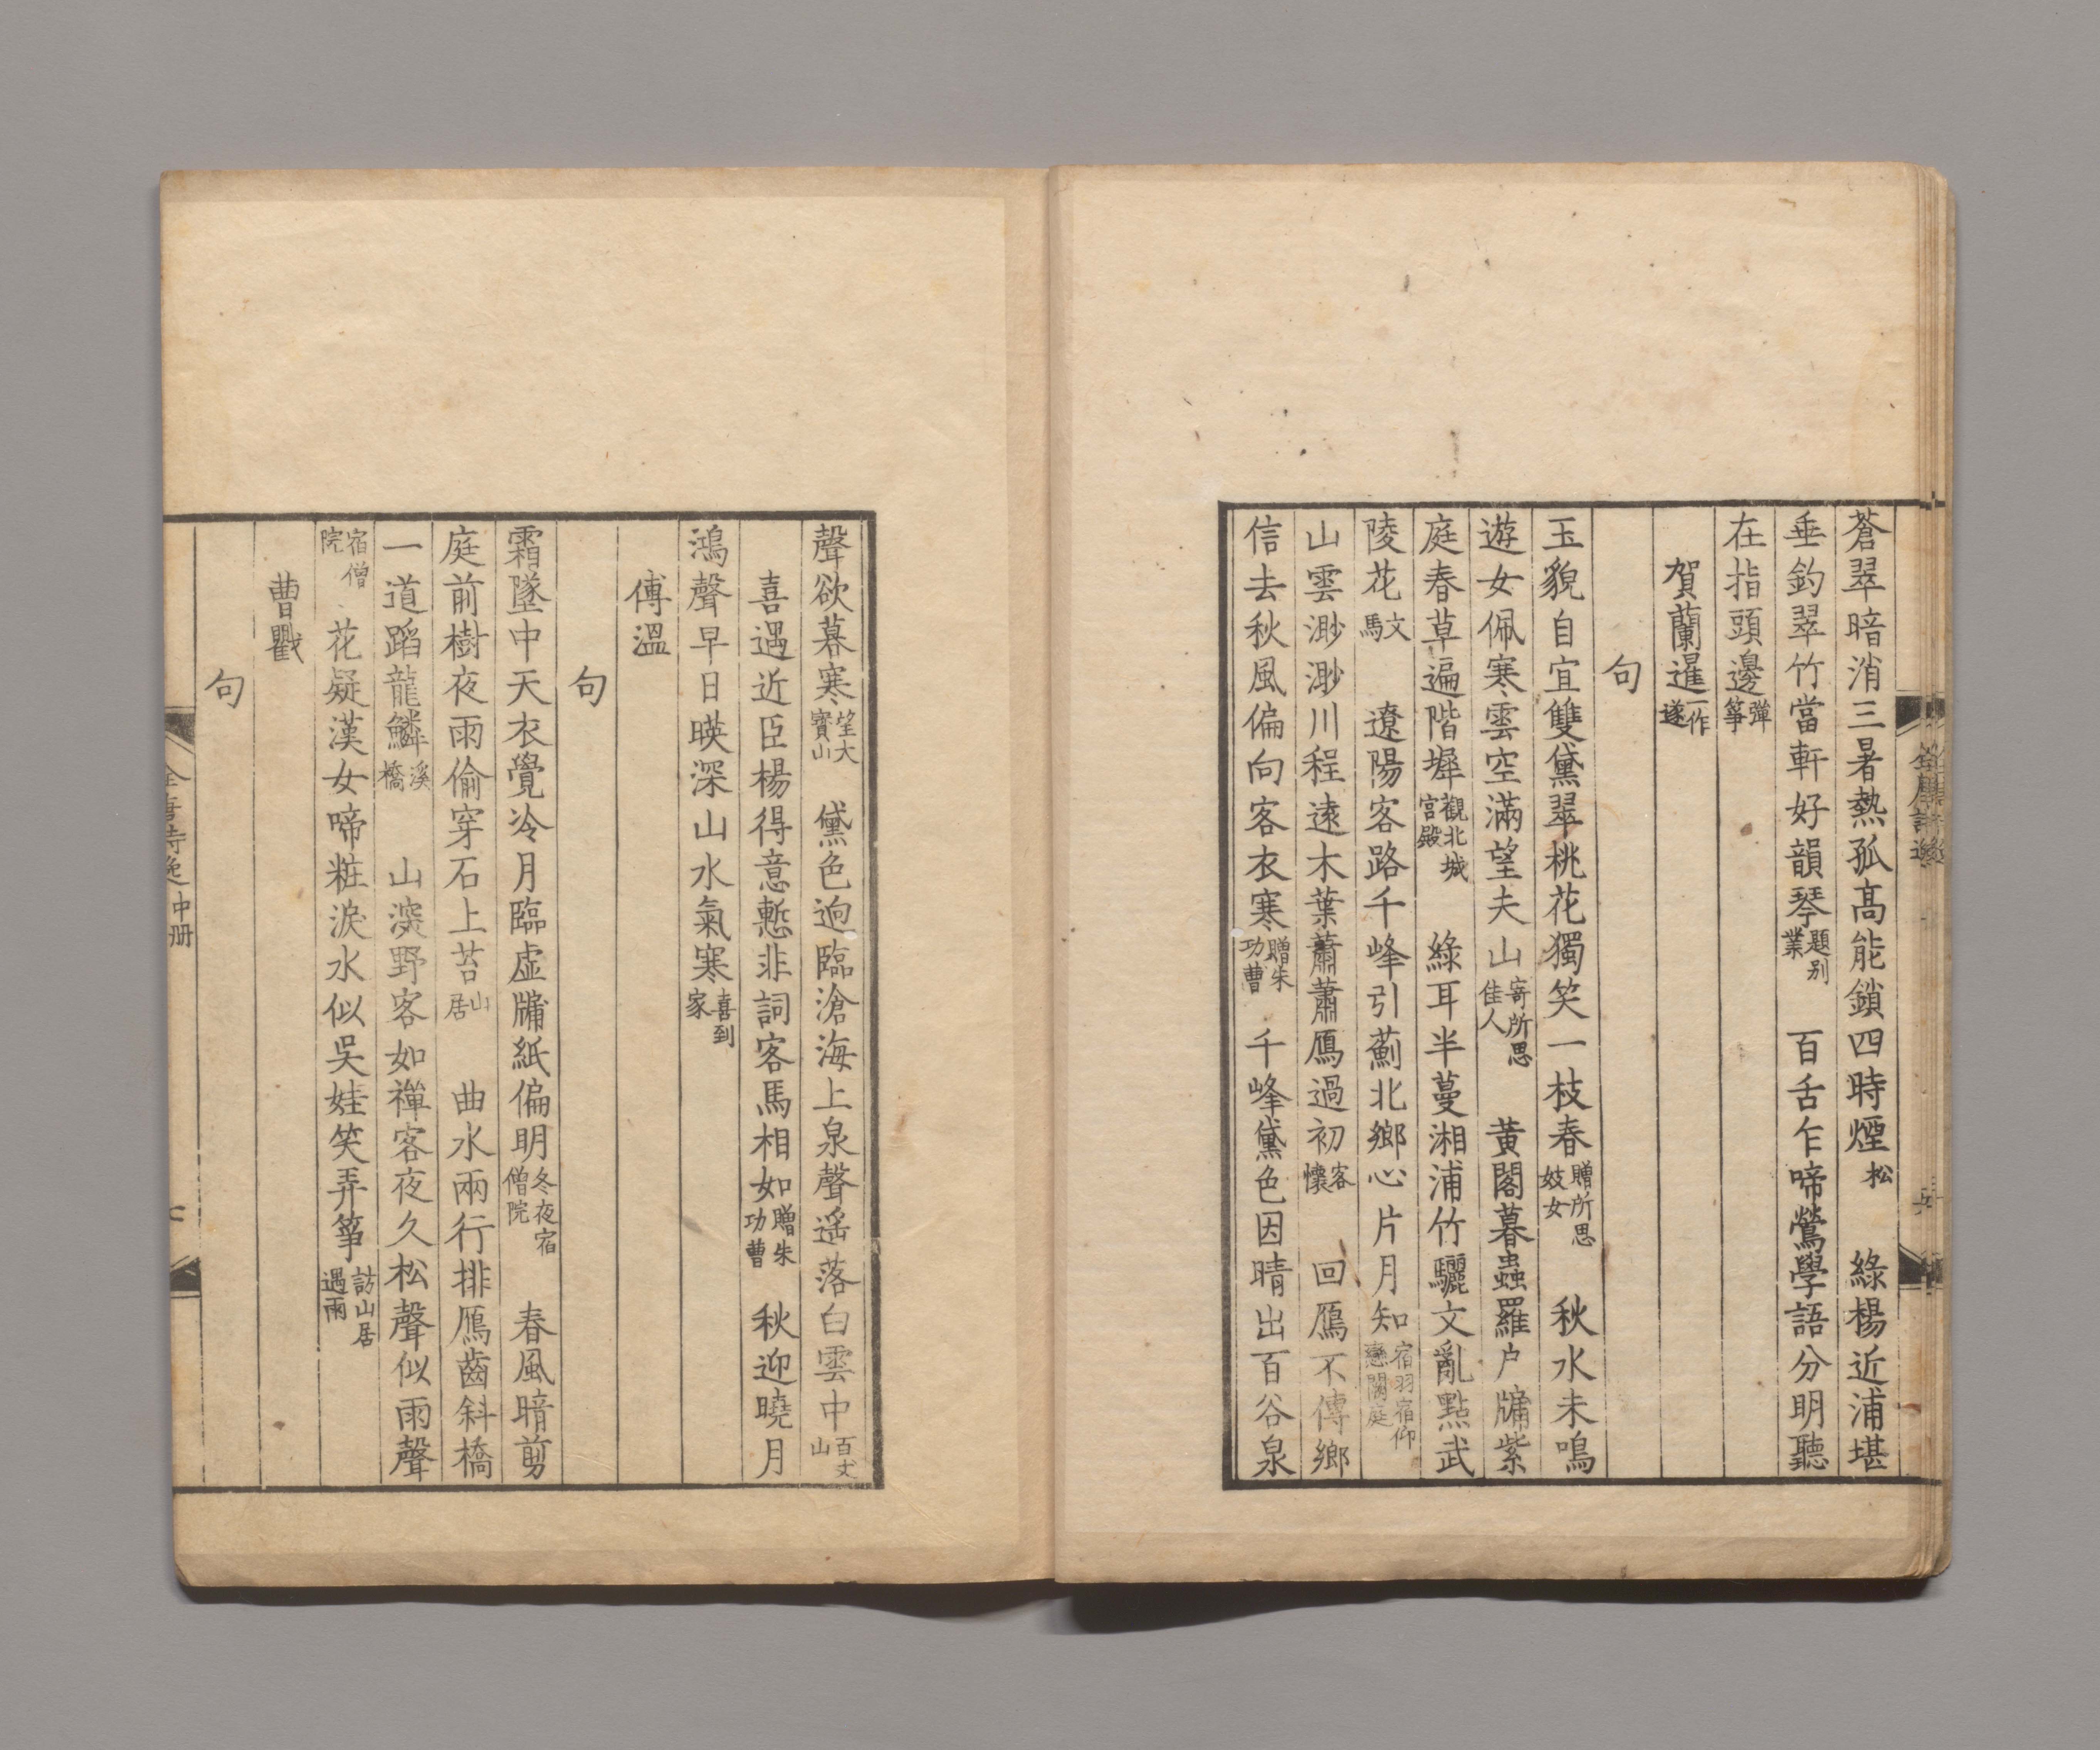 蒼翠暗消三暑熱孤高能鎖四時煙松 綠楊近浦堪
垂釣翠竹當軒好韻琴題別業 百舌乍啼鶯學語分明聽
在指頭邊彈箏
賀蘭暹一作遂
句
玉貌自宜雙黛翠桃花獨笑一枝春贈所思妓女 秋水未鳴
遊女佩寒雲空滿望夫山寄所思佳人 黃閣暮蟲羅戶牖紫
庭春草遍階墀觀北城宮殿 綠耳半蔓湘浦竹驪文亂點武
陵花文馬 遼陽客路千峰引薊北鄉心片月知宿羽宿仰戀闕庭
山雲渺渺川程遠木葉蕭蕭鴈過初客懷 回鴈不傳鄉
信去秋風偏向客衣寒贈朱功曹 千峰黛色因晴出百谷泉
聲欲暮寒望大寶山 黛色迥臨滄海上泉聲遙落白雲中百丈山
喜遇近臣楊得意慙非詞客馬相如贈朱功曹 秋迎曉月
鴻聲早日暎深山水氣寒喜到家
傅溫
句
霜墜中天衣覺冷月臨虛牖紙偏明冬夜宿僧院 春風暗剪
庭前樹夜雨偷穿石上苔山居 曲水兩行排鴈齒斜橋
一道蹈龍鱗溪橋 山深野客如禪客夜久松聲似雨聲
宿僧院 花疑漢女啼粧淚水似吳娃笑弄箏訪山居遇雨
曹戵
句
全唐詩逸 中册
七